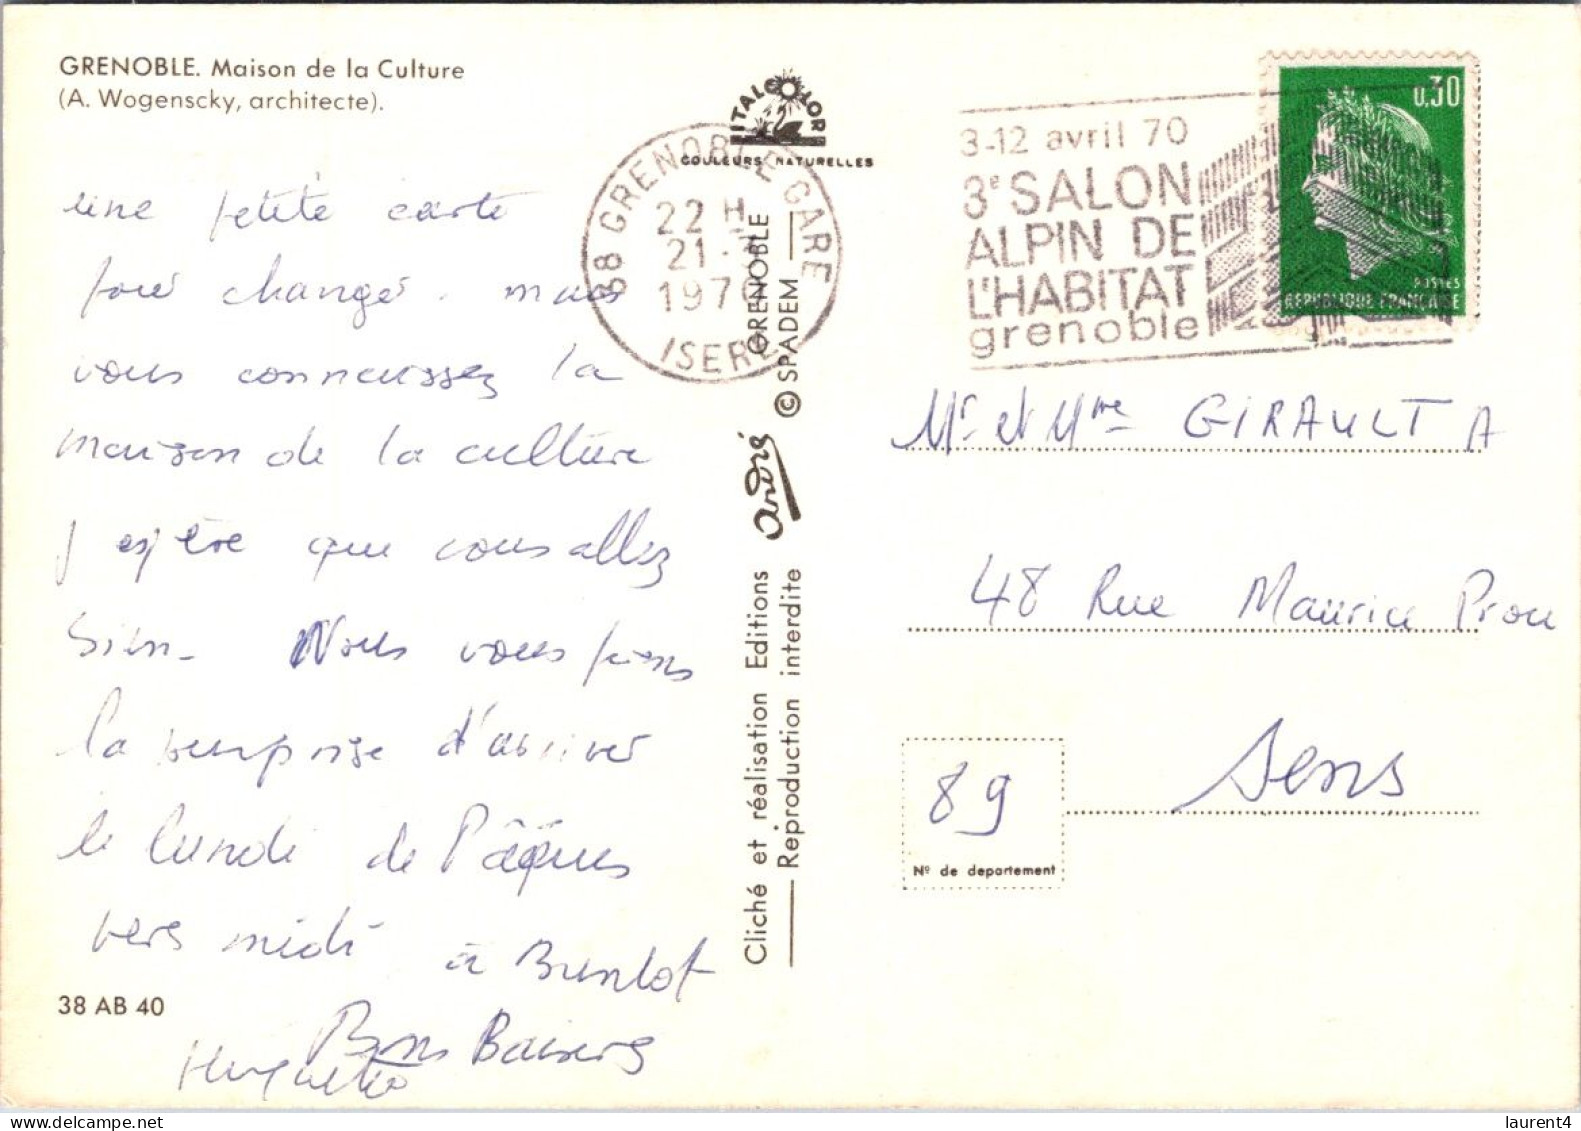 GRENOBLE. Maison de la Culture
(A. Wogenscky, architecte).
une petite carte
pour changer. mais
vous connaissez la
maison de la culture
j'espère que vous allez
bien. Nous vous ferons
la surprise d'arriver
le lundi de Pâques
vers midi à
Bons Baisers
Huguette
38 AB 40
ITALCOLOR
COULEURS NATURELLES
38 GRENOBLE GARE
22 H
21 -
1970
ISERE
GRENOBLE
© SPADEM
André
Cliché et réalisation Editions
Reproduction interdite
3-12 avril 70
3e SALON
ALPIN DE
L'HABITAT
grenoble
0.30
POSTES
REPUBLIQUE FRANÇAISE
Mr et Mme GIRAULT A
48 Rue Maurice Prou
Sens
89
No de departement
laurent4